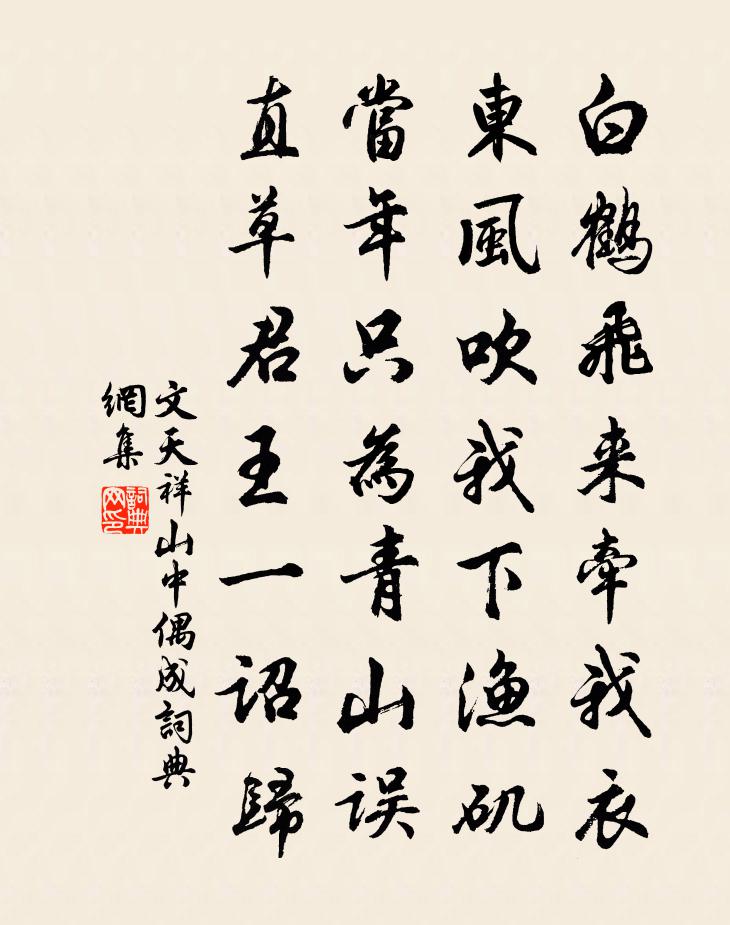 白鶴飛来牽我衣
東風吹我下漁矶
當年只為青山误
直草君王一诏歸
文天祥山中偶成詞典
網集
詞典网印